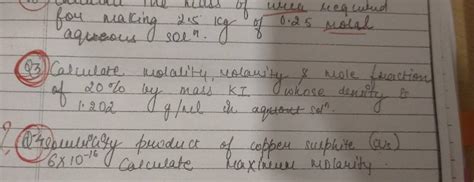 Calculate the mass of urea required
for making 2.5 kg of 0.25 molal
aqueous solⁿ.
Q3 Calculate molality, molarity & mole fraction
of 20% by mass KI whose density is
1.202 g/ml in aquous solⁿ.
? Q4 product of copper sulphite (aq)
6×10⁻¹⁶ Calculate maximum molarity.